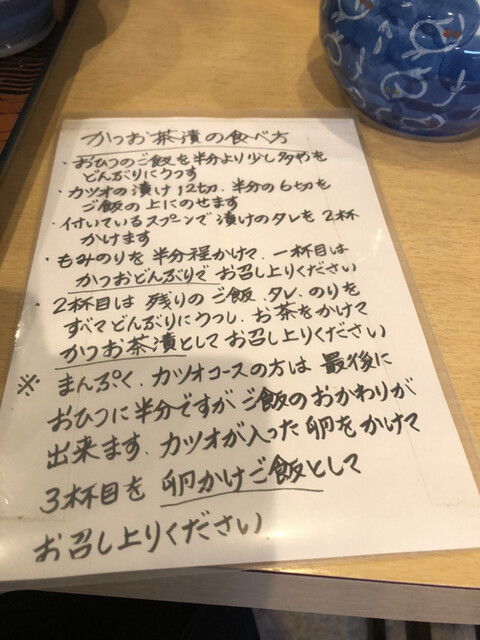 かつお茶漬の食べ方
・おひつのご飯を半分より少し多めを
どんぶりにうつす
・カツオの漬け12切、半分の6切を
ご飯の上にのせます
・付いているスプーンで漬けのタレを2杯
かけます
・もみのりを半分程かけて、一杯目は
かつおどんぶりでお召し上りください
・2杯目は残りのご飯、タレ、のりを
すべてどんぶりにうつし、お茶をかけて
かつお茶漬としてお召し上りください
※まんぷく、カツオコースの方は最後に
おひつに半分ですがご飯のおかわりが
出来ます、カツオが入った卵をかけて
3杯目を卵かけご飯として
お召し上りください